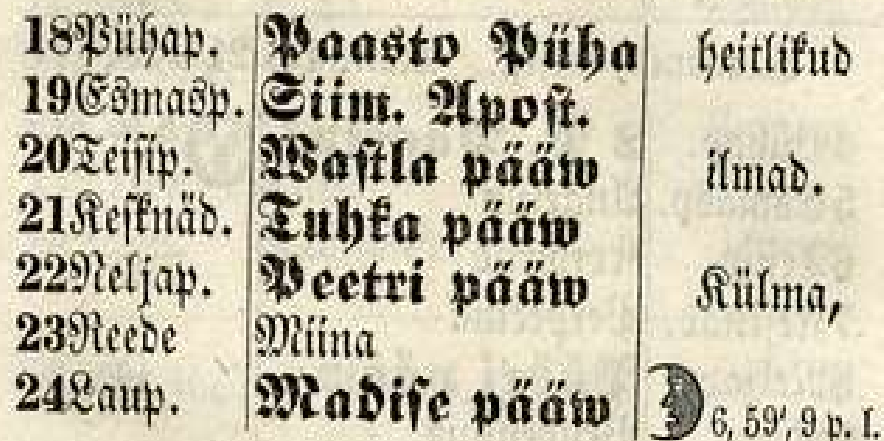 18 Pühap. Paasto Püha heitlikud
19 Esmasp. Siim. Apost.
20 Teisip. Wastla pääw ilmad.
21 Kesknäd. Tuhka pääw
22 Neljap. Peetri pääw Külma,
23 Reede Miina
24 Laup. Madise pääw 6, 59', 9 p. l.